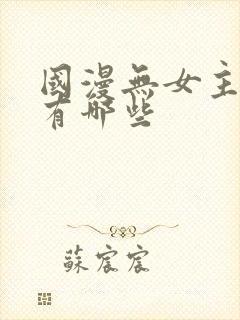 國漫無女主
有哪些
蘇宸宸